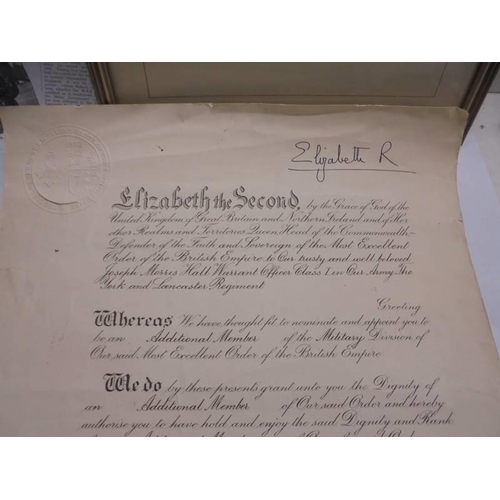 Elizabeth R
Elizabeth the Second, by the Grace of God of the
United Kingdom of Great Britain and Northern Ireland and of Her
other Realms and Territories Queen, Head of the Commonwealth,
Defender of the Faith and Sovereign of the Most Excellent
Order of the British Empire to Our trusty and well beloved
Joseph Morris Hall Warrant Officer Class I in Our Army The
York and Lancaster Regiment
Greeting
Whereas We have thought fit to nominate and appoint you to
be an Additional Member of the Military Division of
Our said Most Excellent Order of the British Empire
We do by these presents grant unto you the Dignity of
an Additional Member of Our said Order and hereby
authorise you to have hold and enjoy the said Dignity and Rank